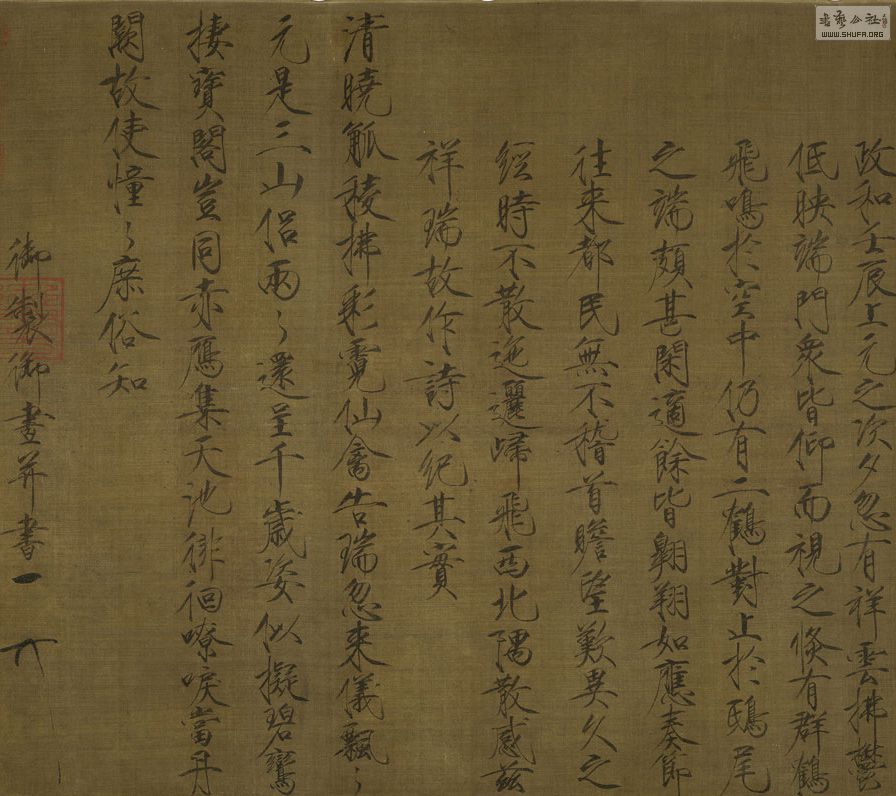 政和壬辰上元之次夕忽有祥雲拂鬱
低映端門衆皆仰而視之倏有群鶴
飛鳴於空中仍有二鶴對止於鴟尾
之端頗甚閑適餘皆翱翔如應奏節
往來都民無不稽首瞻望歎異久之
經時不散迤邐歸飛西北隅散感茲
祥瑞故作詩以紀其實
清曉觚稜拂彩霓仙禽告瑞忽來儀飄〻
元是三山侶兩〻還呈千歲姿似擬碧鸞
棲寶閣豈同赤鴈集天池徘徊嘹唳當丹
闕故使憧〻庶俗知
御製御畫并書
書藝公社
WWW.SHUFA.ORG